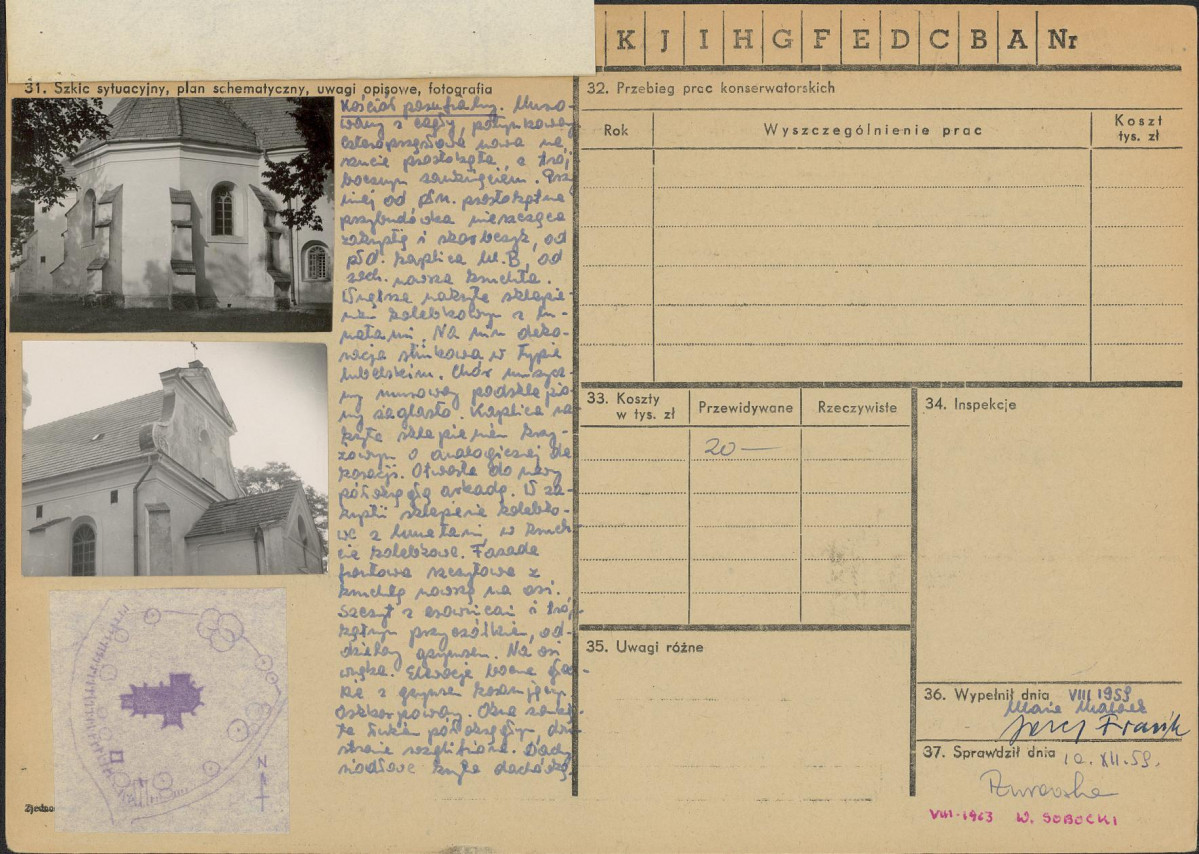 K J I H G F E D C B A Nr
31. Szkic sytuacyjny, plan schematyczny, uwagi opisowe, fotografia
Kościół parafialny. Muro-
wany z cegły, potynkowany
czteroprzęsłowa nawa na
rzucie prostokąta, z trój
bocznym zamknięciem. Przy
niej od płn. prostokątna
przybudówka mieszcząca
zakrystię i skarbczyk, od
płd. kaplica M.B, od
zach. nowsza kruchta.
Wnętrze nakryte sklepie-
niem kolebkowym z lu-
netami. Na nim deko-
racja stiukowa w typie
lubelskim. Chór muzycz-
ny murowany podsklepio-
ny żaglasto. Kaplica na
kryta sklepieniem krzy-
żowym o analogicznej de
koracji. Otwarta do nawy
półkrągłą arkadą. W za-
krystii sklepienie kolebko-
we z lunetami, w kruch-
cie kolebkowe. Fasada
frontowa szczytowa z
kruchtą nowszą na osi.
Szczyt z esownicami i trój-
kątnym przyczółkiem, od-
dzielony gzymsem. Na osi
wnęka. Elewacje boczne gład-
kie z gzymsem koronującym
oszkarpowany. Okna zamknię-
te łukiem półokrągłym, dwu
stronnie rozglifione. Dachy
siodłowe kryte dachówką
N
Zjedno
32. Przebieg prac konserwatorskich
Rok
Wyszczególnienie prac
Koszt
tys. zł
33. Koszty
w tys. zł
Przewidywane
Rzeczywiste
20 —
34. Inspekcje
35. Uwagi różne
36. Wypełnił dnia VIII 1959
Jerzy
37. Sprawdził dnia 10. XII. 59.
VIII-1963 W. SOBOCKI